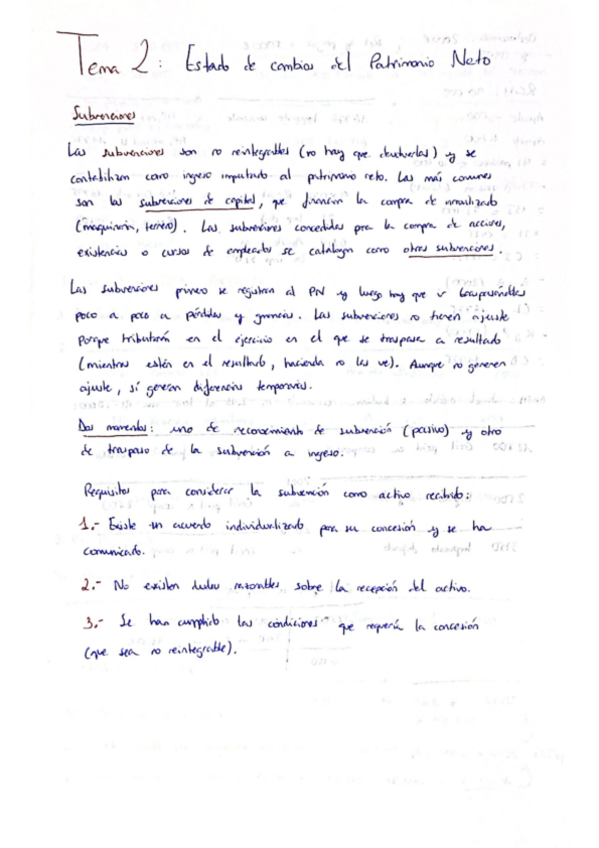 Tema 2: Estado de cambios del Patrimonio Neto
Subvenciones
Las subvenciones son no reintegrables (no hay que devolverlas) y se
contabilizan como ingreso imputado al patrimonio neto. Las más comunes
son las subvenciones de capital, que financian la compra de inmovilizado
(maquinaria, terreno). Las subvenciones concedidas para la compra de acciones,
existencias o cursos de empleados se catalogan como otras subvenciones.
Las subvenciones primero se registran al PN y luego hay que ir traspasándolas
poco a poco a pérdidas y ganancias. Las subvenciones no tienen ajuste
porque tributarán en el ejercicio en el que se traspasa a resultado
(mientras estén en el resultado, hacienda no las ve). Aunque no generen
ajuste, sí generan diferencias temporarias.
Dos momentos: uno de reconocimiento de subvención (pasivo) y otro
de traspaso de la subvención a ingreso.
Requisitos para considerar la subvención como activo recibido:
1.- Existe un acuerdo individualizado para su concesión y se ha
comunicado.
2.- No existen dudas razonables sobre la recepción del activo.
3.- Se han cumplido las condiciones que requería la concesión
(que sea no reintegrable).